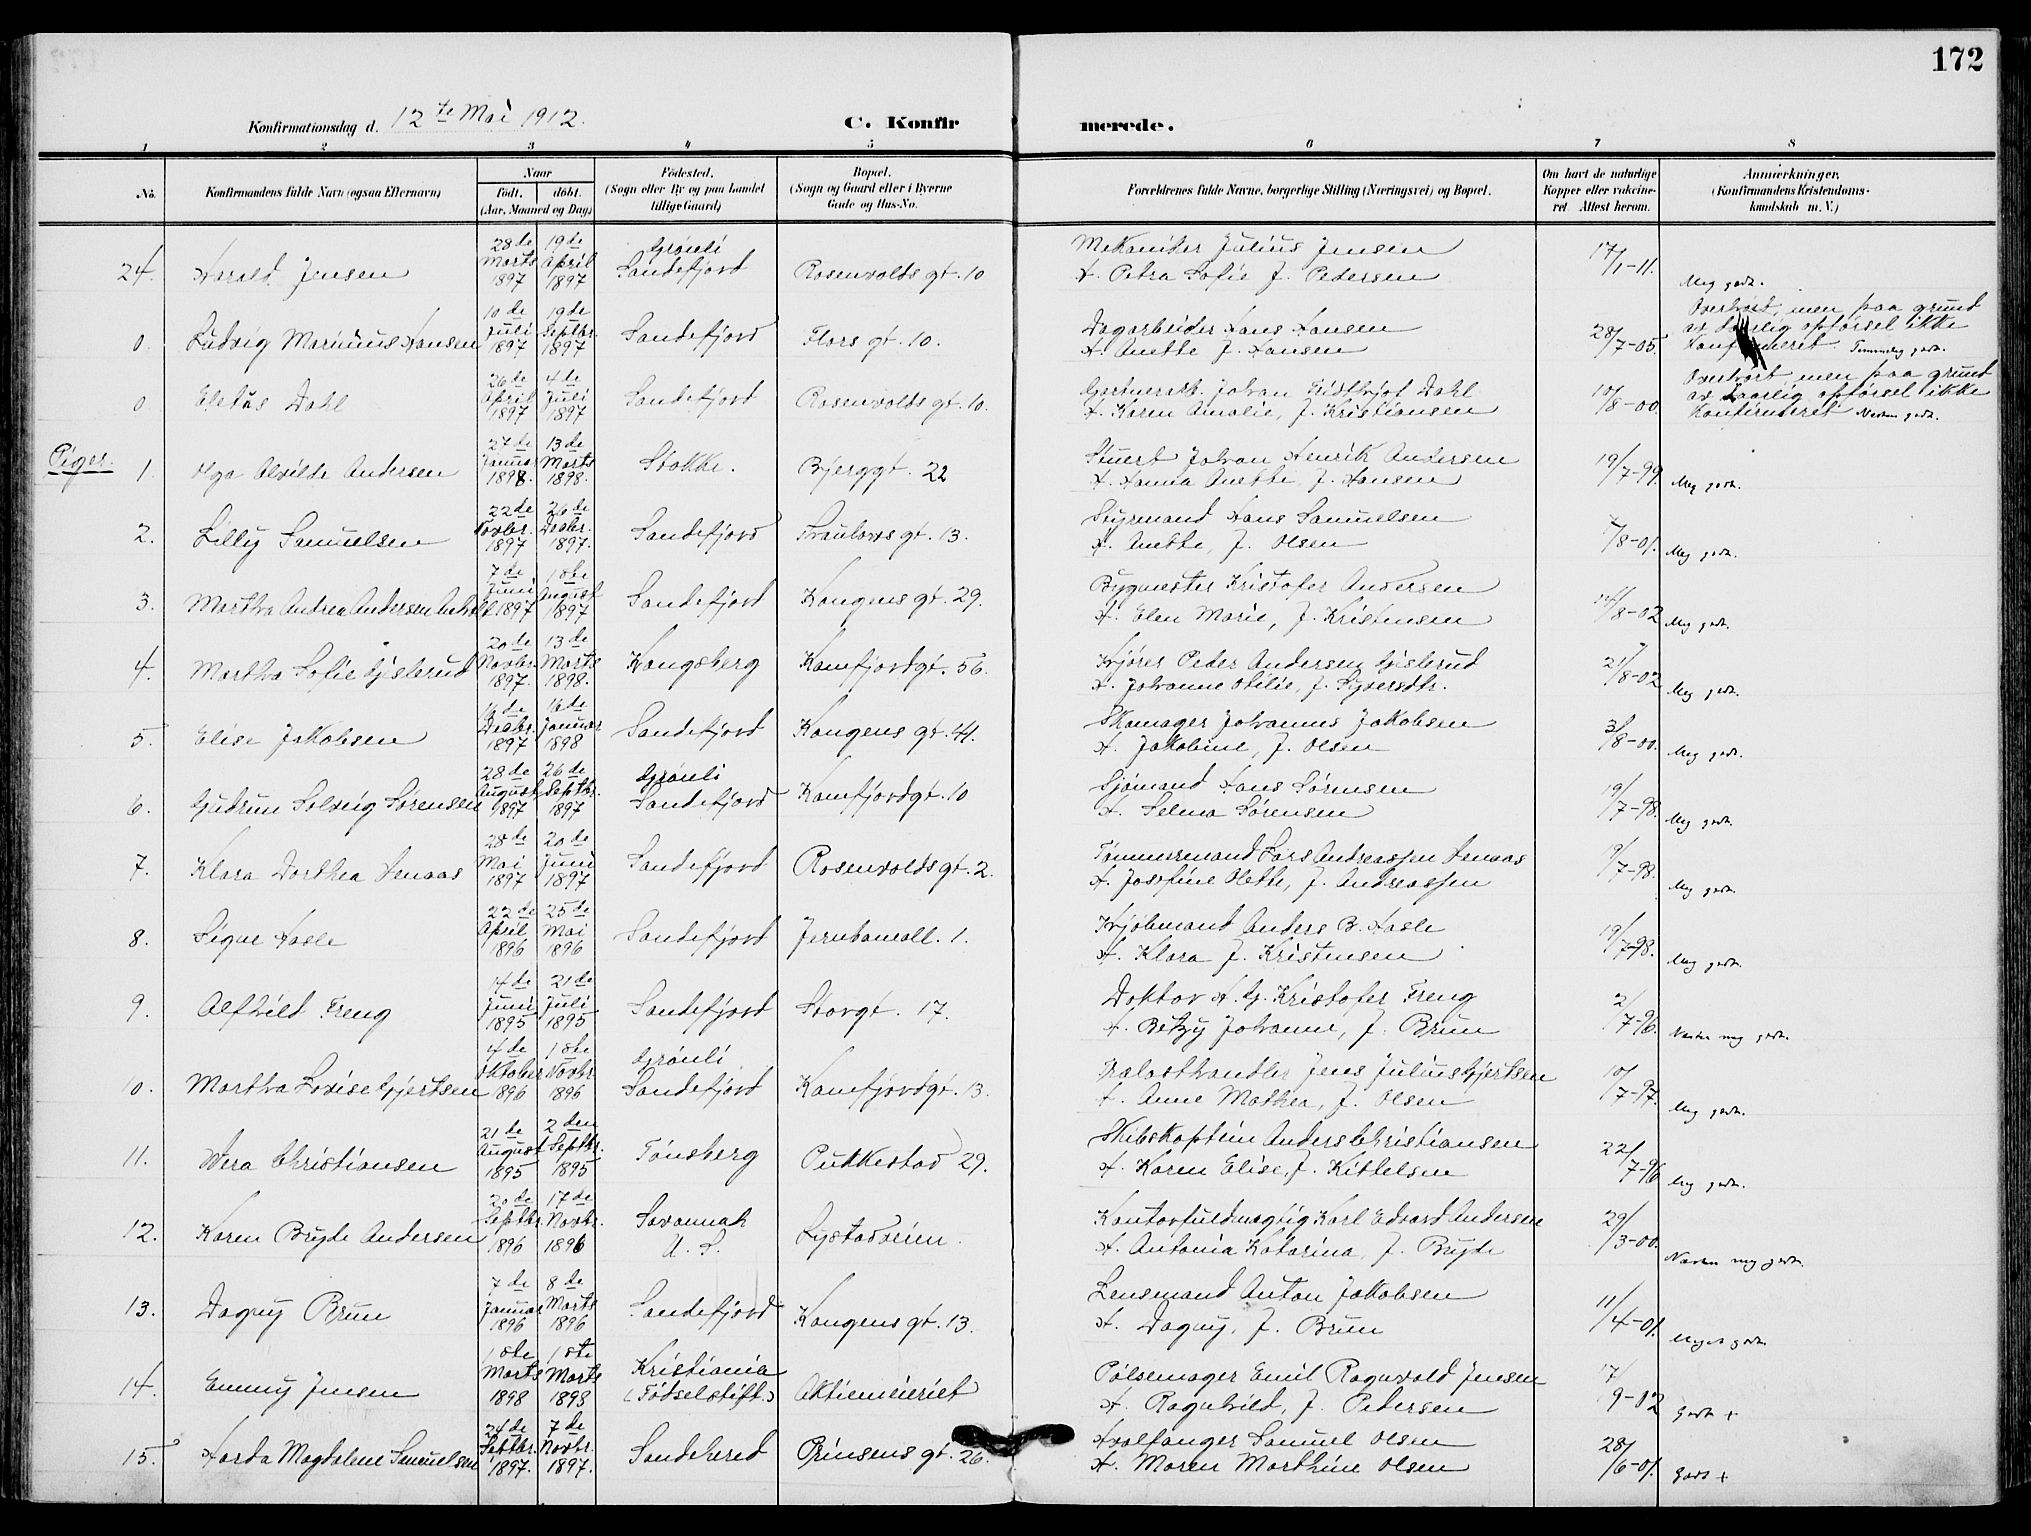 172
Konfirmationsdag d. 12te Mai 1912.
C. Konfirmerede.
1 2 3 4 5 6 7 8
No.
Konfirmandens fulde Navn (ogsaa Efternavn)
Naar
født. døbt.
(Aar, Maaned og Dag)
Fødested.
(Sogn eller By og paa Landet
tillige Gaard)
Bopæl.
(Sogn og Gaard eller i Byerne
Gade og Hus-No.
Forældrenes fulde Navne, borgerlige Stilling (Næringsvei) og Bopæl.
Om havt de naturlige
Kopper eller vaksine-
ret Attest herom.
Anmærkninger,
(Konfirmandens Kristendoms-
kundskab m. V.)
24. Harald Jensen 28de Marts 1897 19de April 1897 Grønli Sandefjord Rosenvolds gt. 10
Mekaniker Julius Jensen
H. Petra Sofie f. Pedersen 17/1-11. Meg godt.
0. Ludvig Marinius Hansen 10de Juli 1897 19de Septbr. 1897 Sandefjord Flors gt. 10.
Dagarbeider Hans Hansen
H. Anette f. Hansen 28/7-05.
Overhørt, men paa grund
av daarlig opførsel ikke
Konfirmeret. Temmelig godt.
0 Eletus Dahl 26de April 1897 4de Juli 1897 Sandefjord Rosenvolds gt. 10.
Gartnerarb. Johan Fridthjof Dahl
H. Karen Amalie, f. Kristiansen 10/8-00.
Overhørt men paa grund
av daarlig opførsel ikke
Konfirmeret Næsten godt.
Piger.
1. Olga Alvilde Andersen 27de Januar 1898. 13de Marts 1898. Stokke. Bjerggt. 22
Stuert Johan Henrik Andersen
H. Hanna Anette, f. Hansen 19/7-99. Meg godt.
2. Lilly Samuelsen 22de Novbr. 1897 26de Decbr. 1897. Sandefjord Thaulows gt. 13.
Styrmand Hans Samuelsen
H. Anette, f. Olsen 7/8-01. Meg godt.
3. Martha Andrea Andersen 7de Juni 1897 1ste August 1897 Sandefjord Kongens gt. 29.
Bygmester Kristofer Andersen
H. Elen Marie, f. Kristensen 14/8-02 Meg godt.
4. Martha Sofie Gislerud 20de Novbr. 1897. 13de Marts 1898. Kongsberg Kamfjordgt. 56.
Kjører Peder Andersen Gislerud
H. Johanne Otilie, f. Syversdtr. 21/8-02 Meg godt.
5. Elise Jakobsen 16de Decbr. 1897 16de Januar 1898 Sandefjord Kongens gt. 44.
Skomager Johannes Jakobsen
H. Jakobine, f. Olsen 3/8-00. Meg godt.
6. Gudrun Solveig Sørensen 28de August 1897 26de Septbr. 1897 Grønli Sandefjord Kamfjordgt. 10
Sjømand Hans Sørensen
H. Selma Sørensen 19/7-98. Meg godt.
7. Klara Dorthea Venaas 28de Mai 1897 20de Juni 1897 Sandefjord Rosenvolds gt. 2.
Tømmermand Lars Andreassen Venaas
H. Josefine Olette, f. Andreassen 19/7-98. Meg godt.
8. Signe Hasle 22de April 1896 25de Mai 1896 Sandefjord Jernbaneall. 1.
Kjøbmand Anders B. Hasle
H. Klara f. Kristensen 19/7-98. Meg godt.
9. Alfhild Freng 14de Juni 1895 21de Juli 1895 Sandefjord Storgt. 17.
Doktor H. G. Kristofer Freng
H. Betzy Johanne, f. Brun 2/7-96. Næsten meg godt.
10. Martha Lovise Gjertsen 4de Oktober 1896 1ste Novbr. 1896 Grønli Sandefjord Kamfjordgt. 13.
Jens Julius Gjertsen
H. Anne Mathea, f. Olsen 10/7-97. Meg godt.
11. Wera Christiansen 21de August 1895 2den Septbr. 1895 Tønsberg Pukkestad 29.
Skibskaptein Anders Christiansen
H. Karen Elise, f. Kittelsen 22/7-96 Meg godt.
12. Karen Bryde Andersen 20de Septbr. 1896 17de Novbr. 1896 Savannah U. S. Lystadveien.
Kontorfuldmægtig Karl Edvard Andersen
H. Antonia Katarina, f. Bryde 29/3-00. Næsten meg godt.
13. Dagny Brun 7de Januar 1896 8de Marts 1896 Sandefjord Kongens gt. 13.
Lensmand Anton Jakobsen
H. Dagny, f. Brun 11/4-01. Meget godt.
14. Emmy Jensen 1ste Marts 1898 1ste Marts 1898 Kristiania (Fødselstift.) Aktiemeieriet
Pølsemager Emil Ragnvald Jensen
H. Ragnhild, f. Pedersen 17/9-02 Godt +
15. Harda Magdalene Samuelsen 24de Septbr. 1897. 7de Novbr. 1897. Sandeherred Prinsens gt. 26.
Hvalfanger Samuel Olsen
H. Maren Marthine Olsen 28/6-01. Godt +